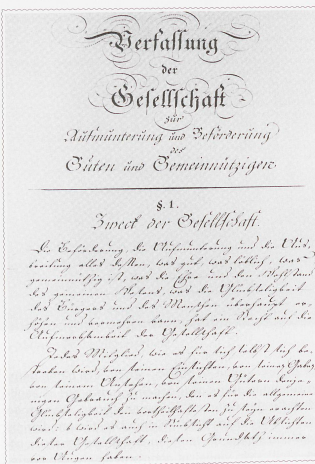 Verfassung
der
Gesellschaft
zur
Aufmunterung und Beförderung
des
Guten und Gemeinnützigen.
§. 1.
Zweck der Gesellschaft.
Die Beförderung, die Aufmunterung und die Aus-
breitung alles dessen, was gut, was löblich, was
gemeinnützig ist, was die Ehre und den Wohlstand
des gemeinen Wesens, was die Glückseligkeit
des Bürgers und des Menschen überhaupt er-
höhen und vermehren kann, hat ein Recht auf die
Aufmerksamkeit der Gesellschaft.
Jedes Mitglied, wie es für sich selbst sich be-
streben wird, von seinen Einsichten, von seinen Gaben,
von seinem Ansehen, von seinen Gütern denje-
nigen Gebrauch zu machen, den es für die allgemeine
Glückseligkeit den vortheilhaftesten zu seyn erachten
wird; so wird es auch in Rücksicht auf die Absichten
dieser Gesellschaft, diesen Grundsatz immer
vor Augen haben.